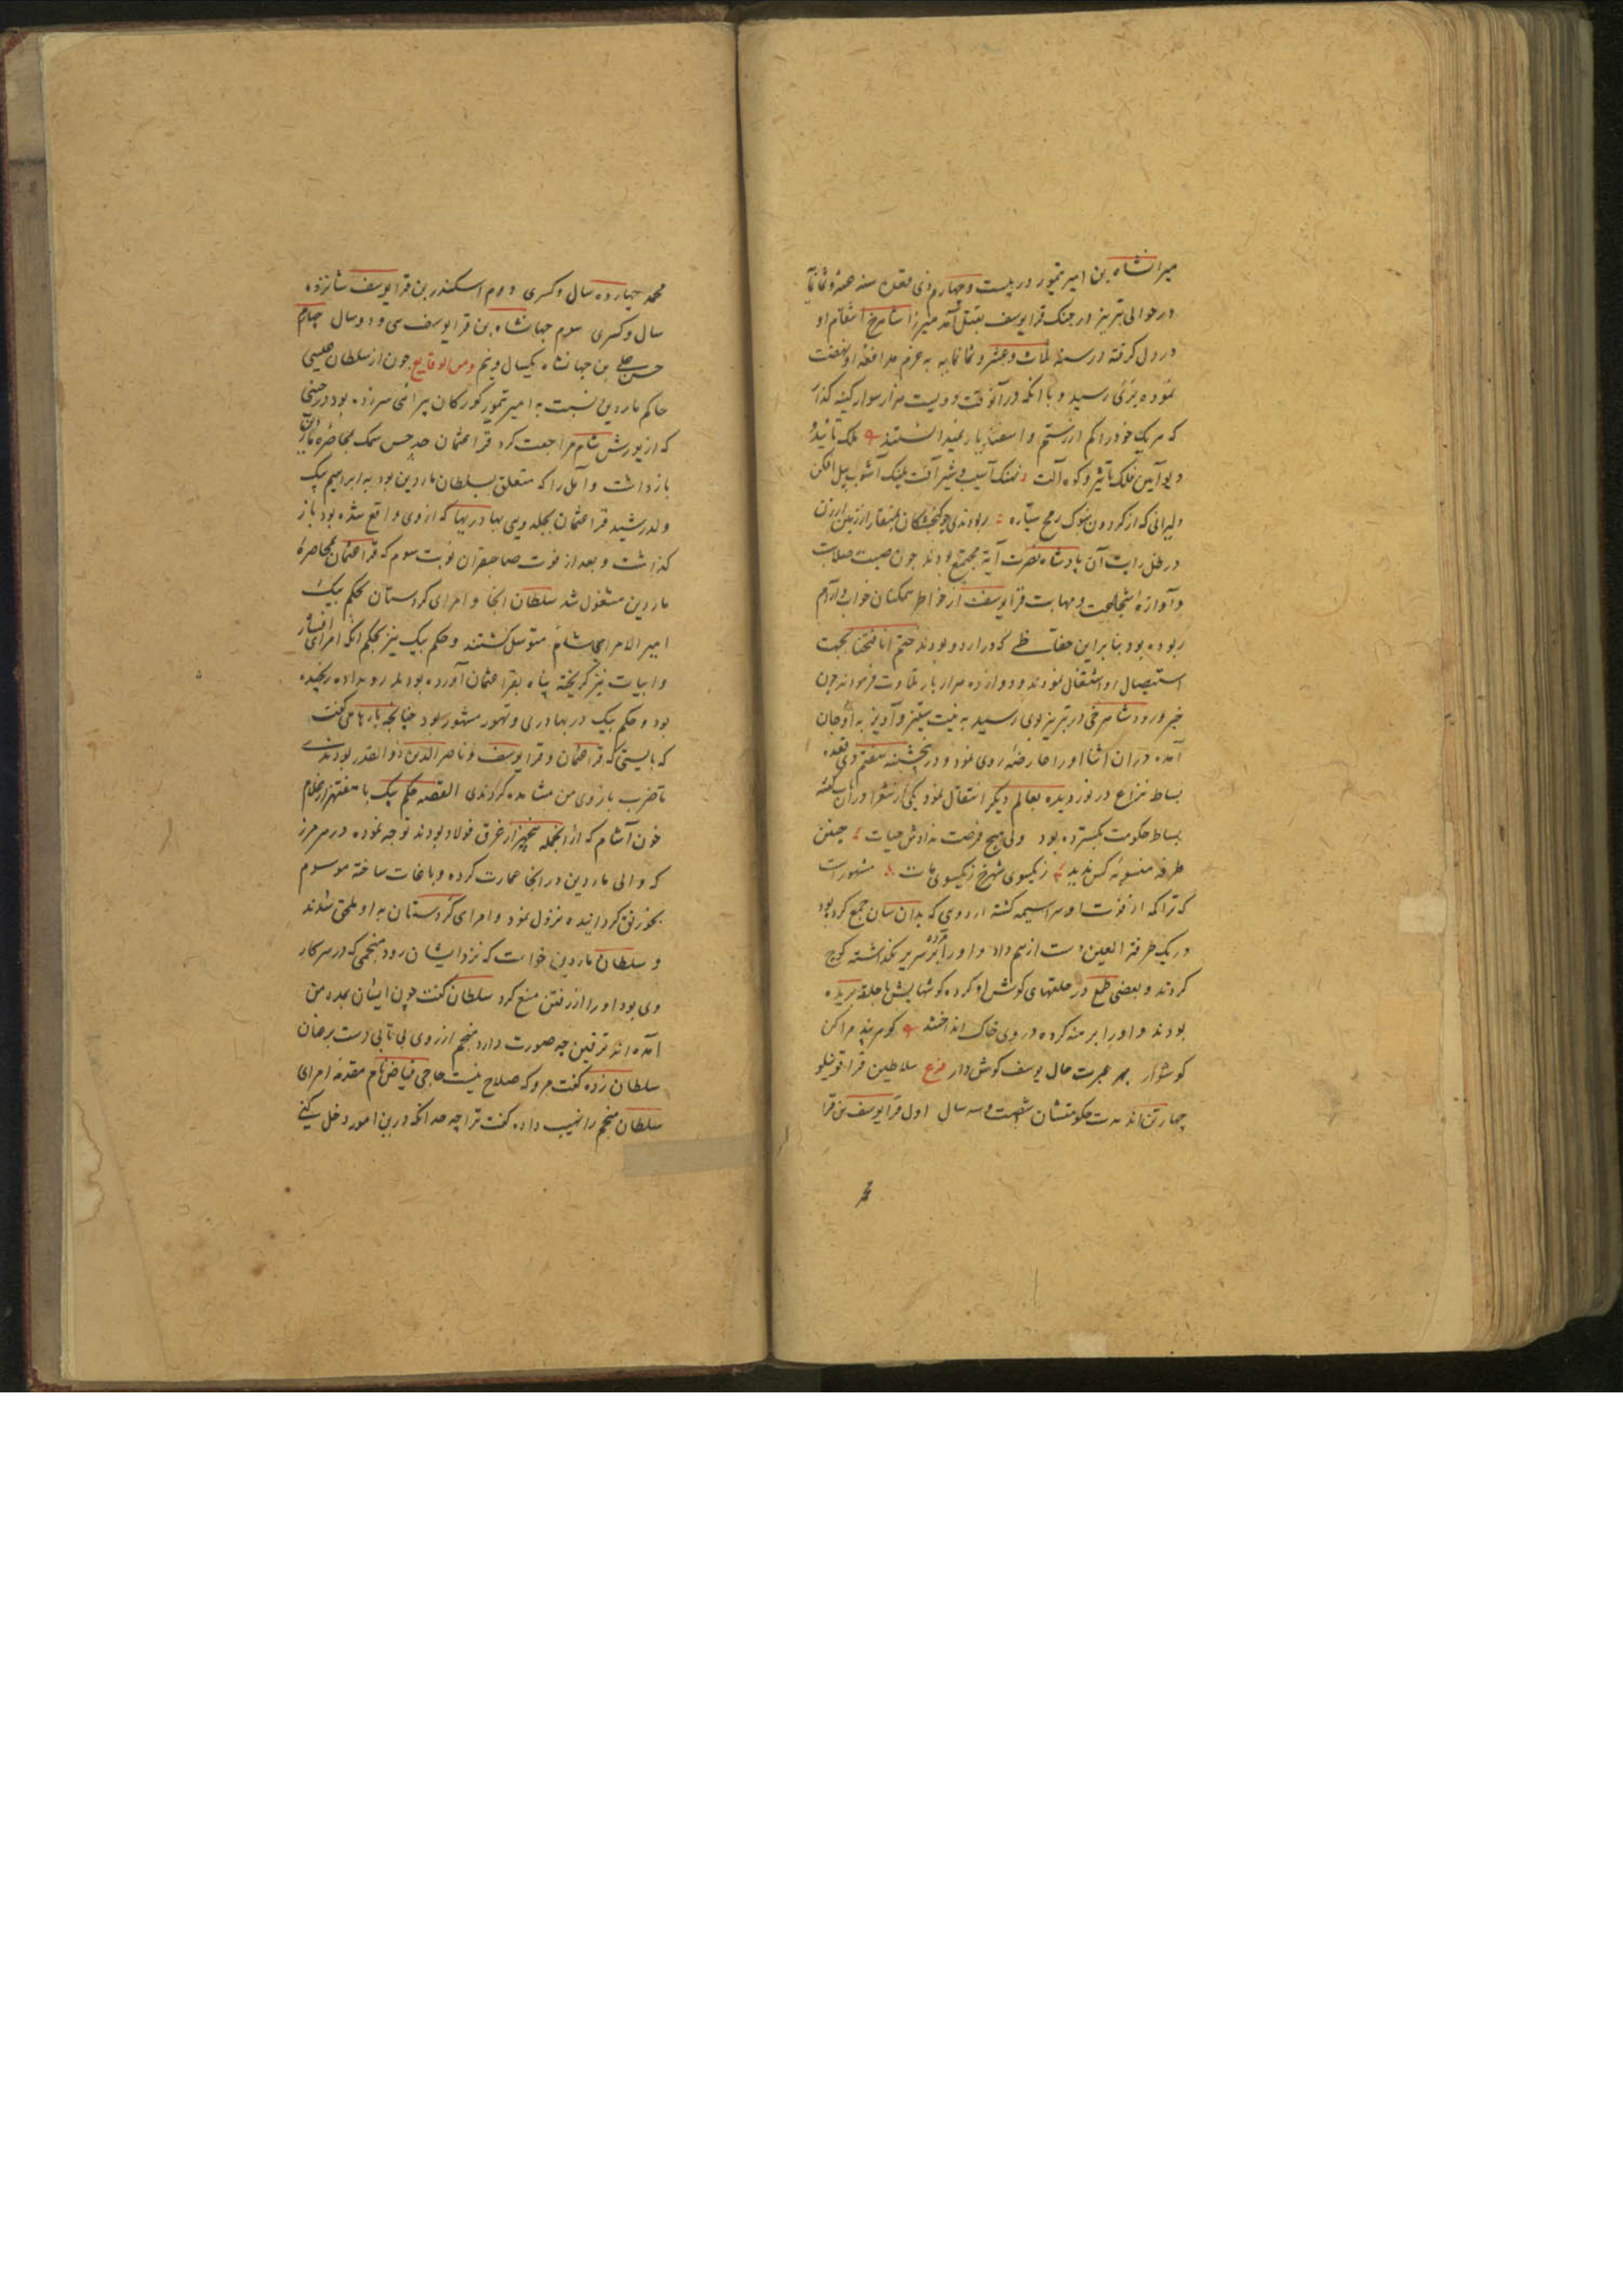 میرانشاه بن امیر تیمور در بیست و چهارم ذی قعده سنه عشر و ثمانمایه
در حوالی تبریز در جنک قرایوسف بقتل آمد میرزا شاهرخ انتقام او
در دل کرفته در سنه ثلث و عشر و ثمانمایه به عزم مدافعهٔ او نهضت
نموده بری رسید و با انکه در آنوقت دویست هزار سوار کینه کذار
که هر یک خود را کم از رستم و اسفندیار نمیدانستند ملک تائید و
دیو آیین فلک تاثیر و کوه آلت نهنک آسیب و شیر آفت پلنک آشوب پیل افکن
دلیرانی که از کردون بنوک رمح سیاره ربودندی چو کنجشکان بمنقار از زمین ارزن
در ظل رایت آن پادشاه نصرت آیة مجتمع بودند چون صیت صلابت
و آوازهٔ شجاعت و مهابت قرایوسف از خواطر متمکنان خواب و آرام
ربوده بود بنا برین حفاظی که در اردو بودند ختم انا فتحنا بجهت
استیصال او اشتغال نمودند و دوازده هزار بار تلاوت فرمودند چون
خبر ورود شاهرخی در تبریز بوی رسید به نیت ستیز و آویز به اوجان
آمده دران اثنا او را عارضهٔ روی نمود و در پنجشنبه هفتم ذی قعده
بساط نزاع در نوردیده بعالم دیکر انتقال نمود یکی از شعرا دران باب کفته
بساط حکومت بکسترده بود ولی هیچ فرصت ندادش حیات چنین
طرفه منصوبه کس ندید زیکسوی شهرخ زیکسوی مات مشهورست
که تراکمه از فوت او سراسیمه کشته اردوی که بدان سان جمع کرده بود
در یک طرفة العین دست از هم داد و او را مرده بر سریر بکذاشته کوچ
کردند و بعضی طمع در حلقهای کوش او کرده کوشهایش با حلقه بریده
بودند و او را برهنه کرده در روی خاک انداختند کوهر پند مرا کن
کوشوار بهر عبرت حال یوسف کوش دار فرع سلاطین قراقوینلو
چهار تن اند مدت حکومتشان شصت و سه سال اول قرایوسف بن قرا
محمد
محمد چهارده سال و کسری دوم اسکندر بن قرایوسف شانزده
سال و کسری سوم جهانشاه بن قرایوسف سی و دو سال چهارم
حسن علی بن جهانشاه یکسال و نیم و من الوقایع چون از سلطان عیسی
حاکم ماردین نسبت به امیر تیمور کورکان بیرائی سر زده بود در حینی
که از یورش شام مراجعت کرد قرا عثمان جد حسن بیک بمحاصرهٔ ماردین
بازداشت و آمل را که متعلق بسلطان ماردین بود به ابراهیم بیک
ولد رشید قرا عثمان بجلدوی بهادریها که از وی واقع شده بود باز
کذاشت و بعد از فوت صاحبقران نوبت سوم که قرا عثمان بمحاصرهٔ
ماردین مشغول شد سلطان انجا و امرای کردستان بحکم بیک
امیر الامرای شام متوسل کشتند و حکم بیک نیز بحکم انکه امرای افشار
و ابیات نیز کریخته پناه بقرا عثمان آورده بودند و نداده رنجیده
بود و حکم بیک در بهادری و تهور مشهور بود چنانچه بارها می کفت
که بایستی که قرا عثمان و قرا یوسف و ناصر الدین ذوالقدر بودندی
تا ضرب بازوی من مشاهده کردندی القصه حکم بیک با هفتهزار غلام
خون آشام که از انجمله پنجهزار غرق فولاد بودند توجه نموده در سر مرز
که والی ماردین در انجا عمارت کرده و باغات ساخته موسوم
بخورنق کردانیده نزول نمود و امرای کردستان به او ملحق شدند
و سلطان ماردین خواست که نزد ایشان رود منجمی که در سرکار
وی بود او را از رفتن منع کرد سلطان کفت چون ایشان بمدد من
آمده اند نرفتن چه صورت دارد منجم از روی بی تابی دست بر عنان
سلطان زده کفت مرو که صلاح نیست حاجی فیاض نام مقدمه امرای
سلطان منجم را نهیب داده کفت ترا چه حد انکه درین امور دخل کنی